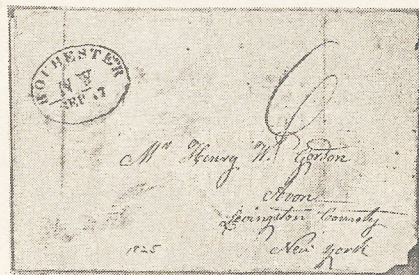 ROCHESTER
NY
SEP 17
6
Mr Henry W. Gordon
Avon
Livingston County
New York
1825